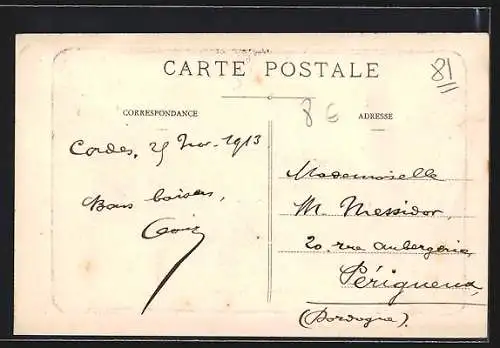 CARTE POSTALE
81
8 €
CORRESPONDANCE
ADRESSE
Cordes, 25 Nov. 1913
Bons baisers,
Mademoiselle
M. Messidor,
20. rue aubergerie,
Périgueux,
(Dordogne).